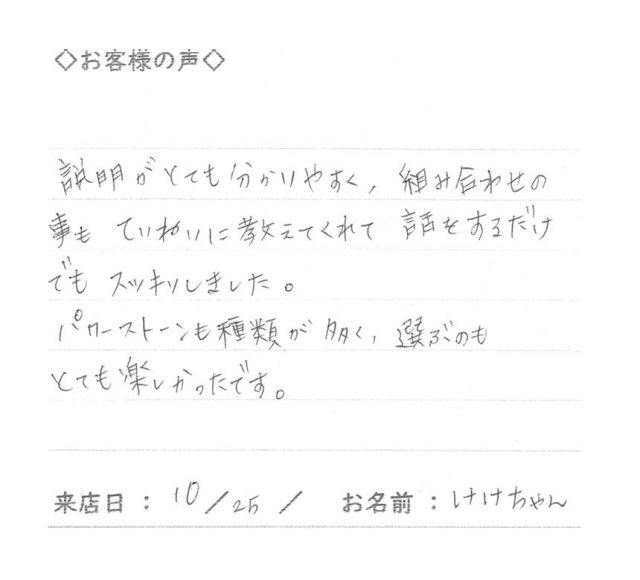 ◇お客様の声◇
説明がとても分かりやすく、組み合わせの
事も ていねいに教えてくれて 話をするだけ
でも スッキリしました。
パワーストーンも種類が多く、選ぶのも
とても楽しかったです。
来店日 : 10 / 25 / お名前 : けけちゃん